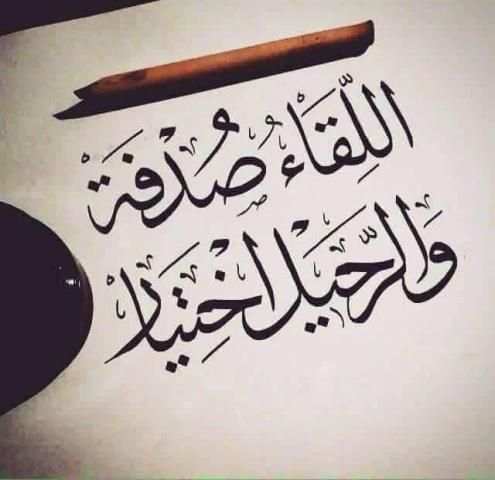 اللِّقَاءُ صُدْفَةْ
وَالرَّحيَل اخْتِيَار